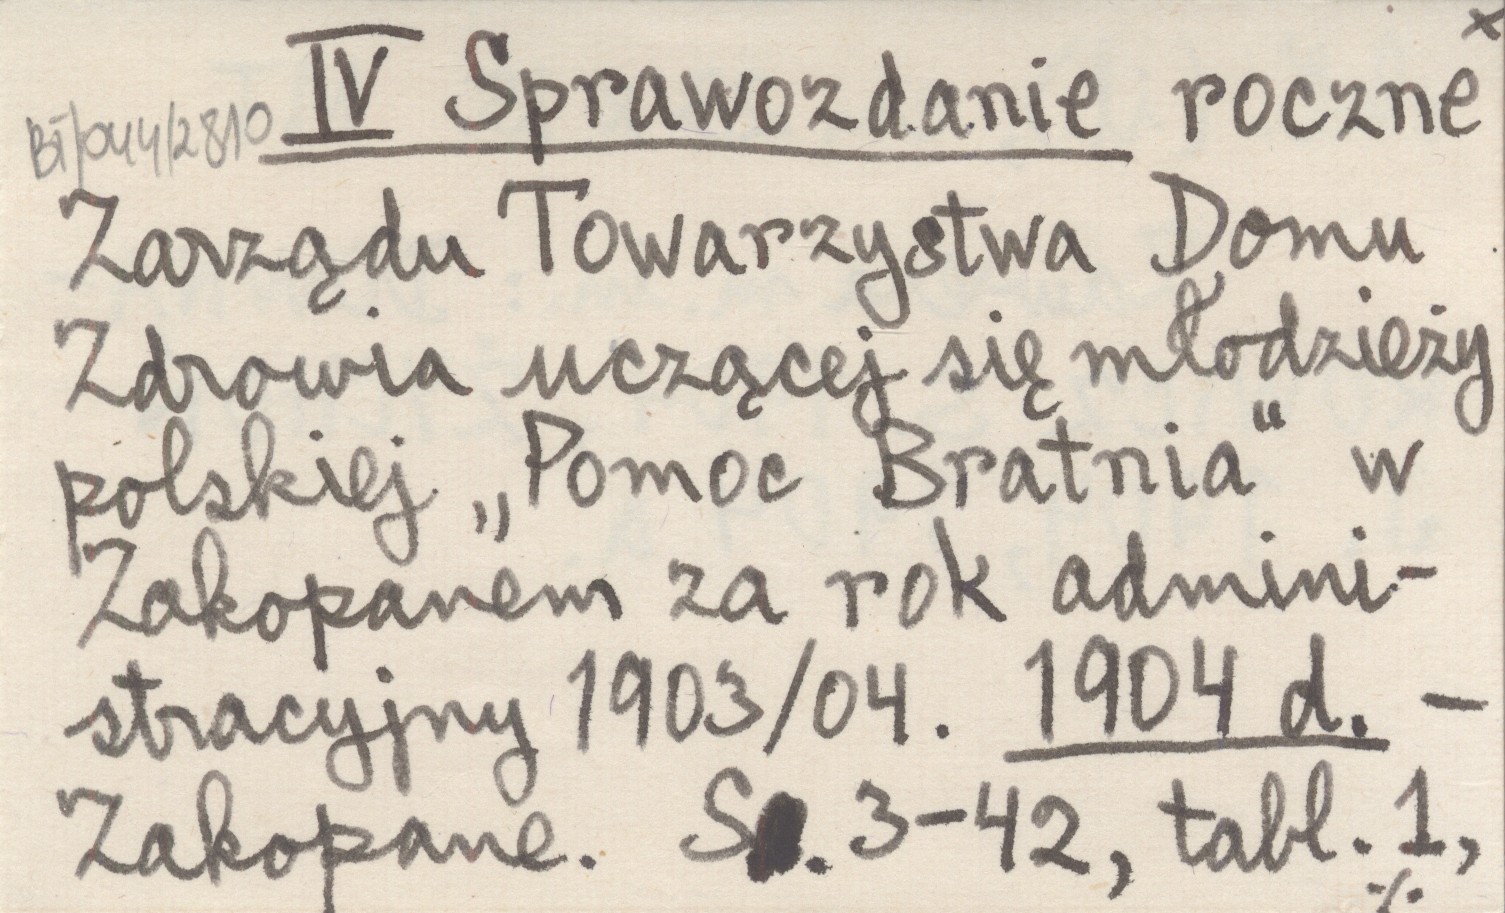 x
BT/044/2810 IV Sprawozdanie roczne
Zarządu Towarzystwa Domu
Zdrowia uczącej się młodzieży
polskiej „Pomoc Bratnia“ w
Zakopanem za rok admini-
stracyjny 1903/04. 1904 d. –
Zakopane. S. 3–42, tabl. 1,
./.